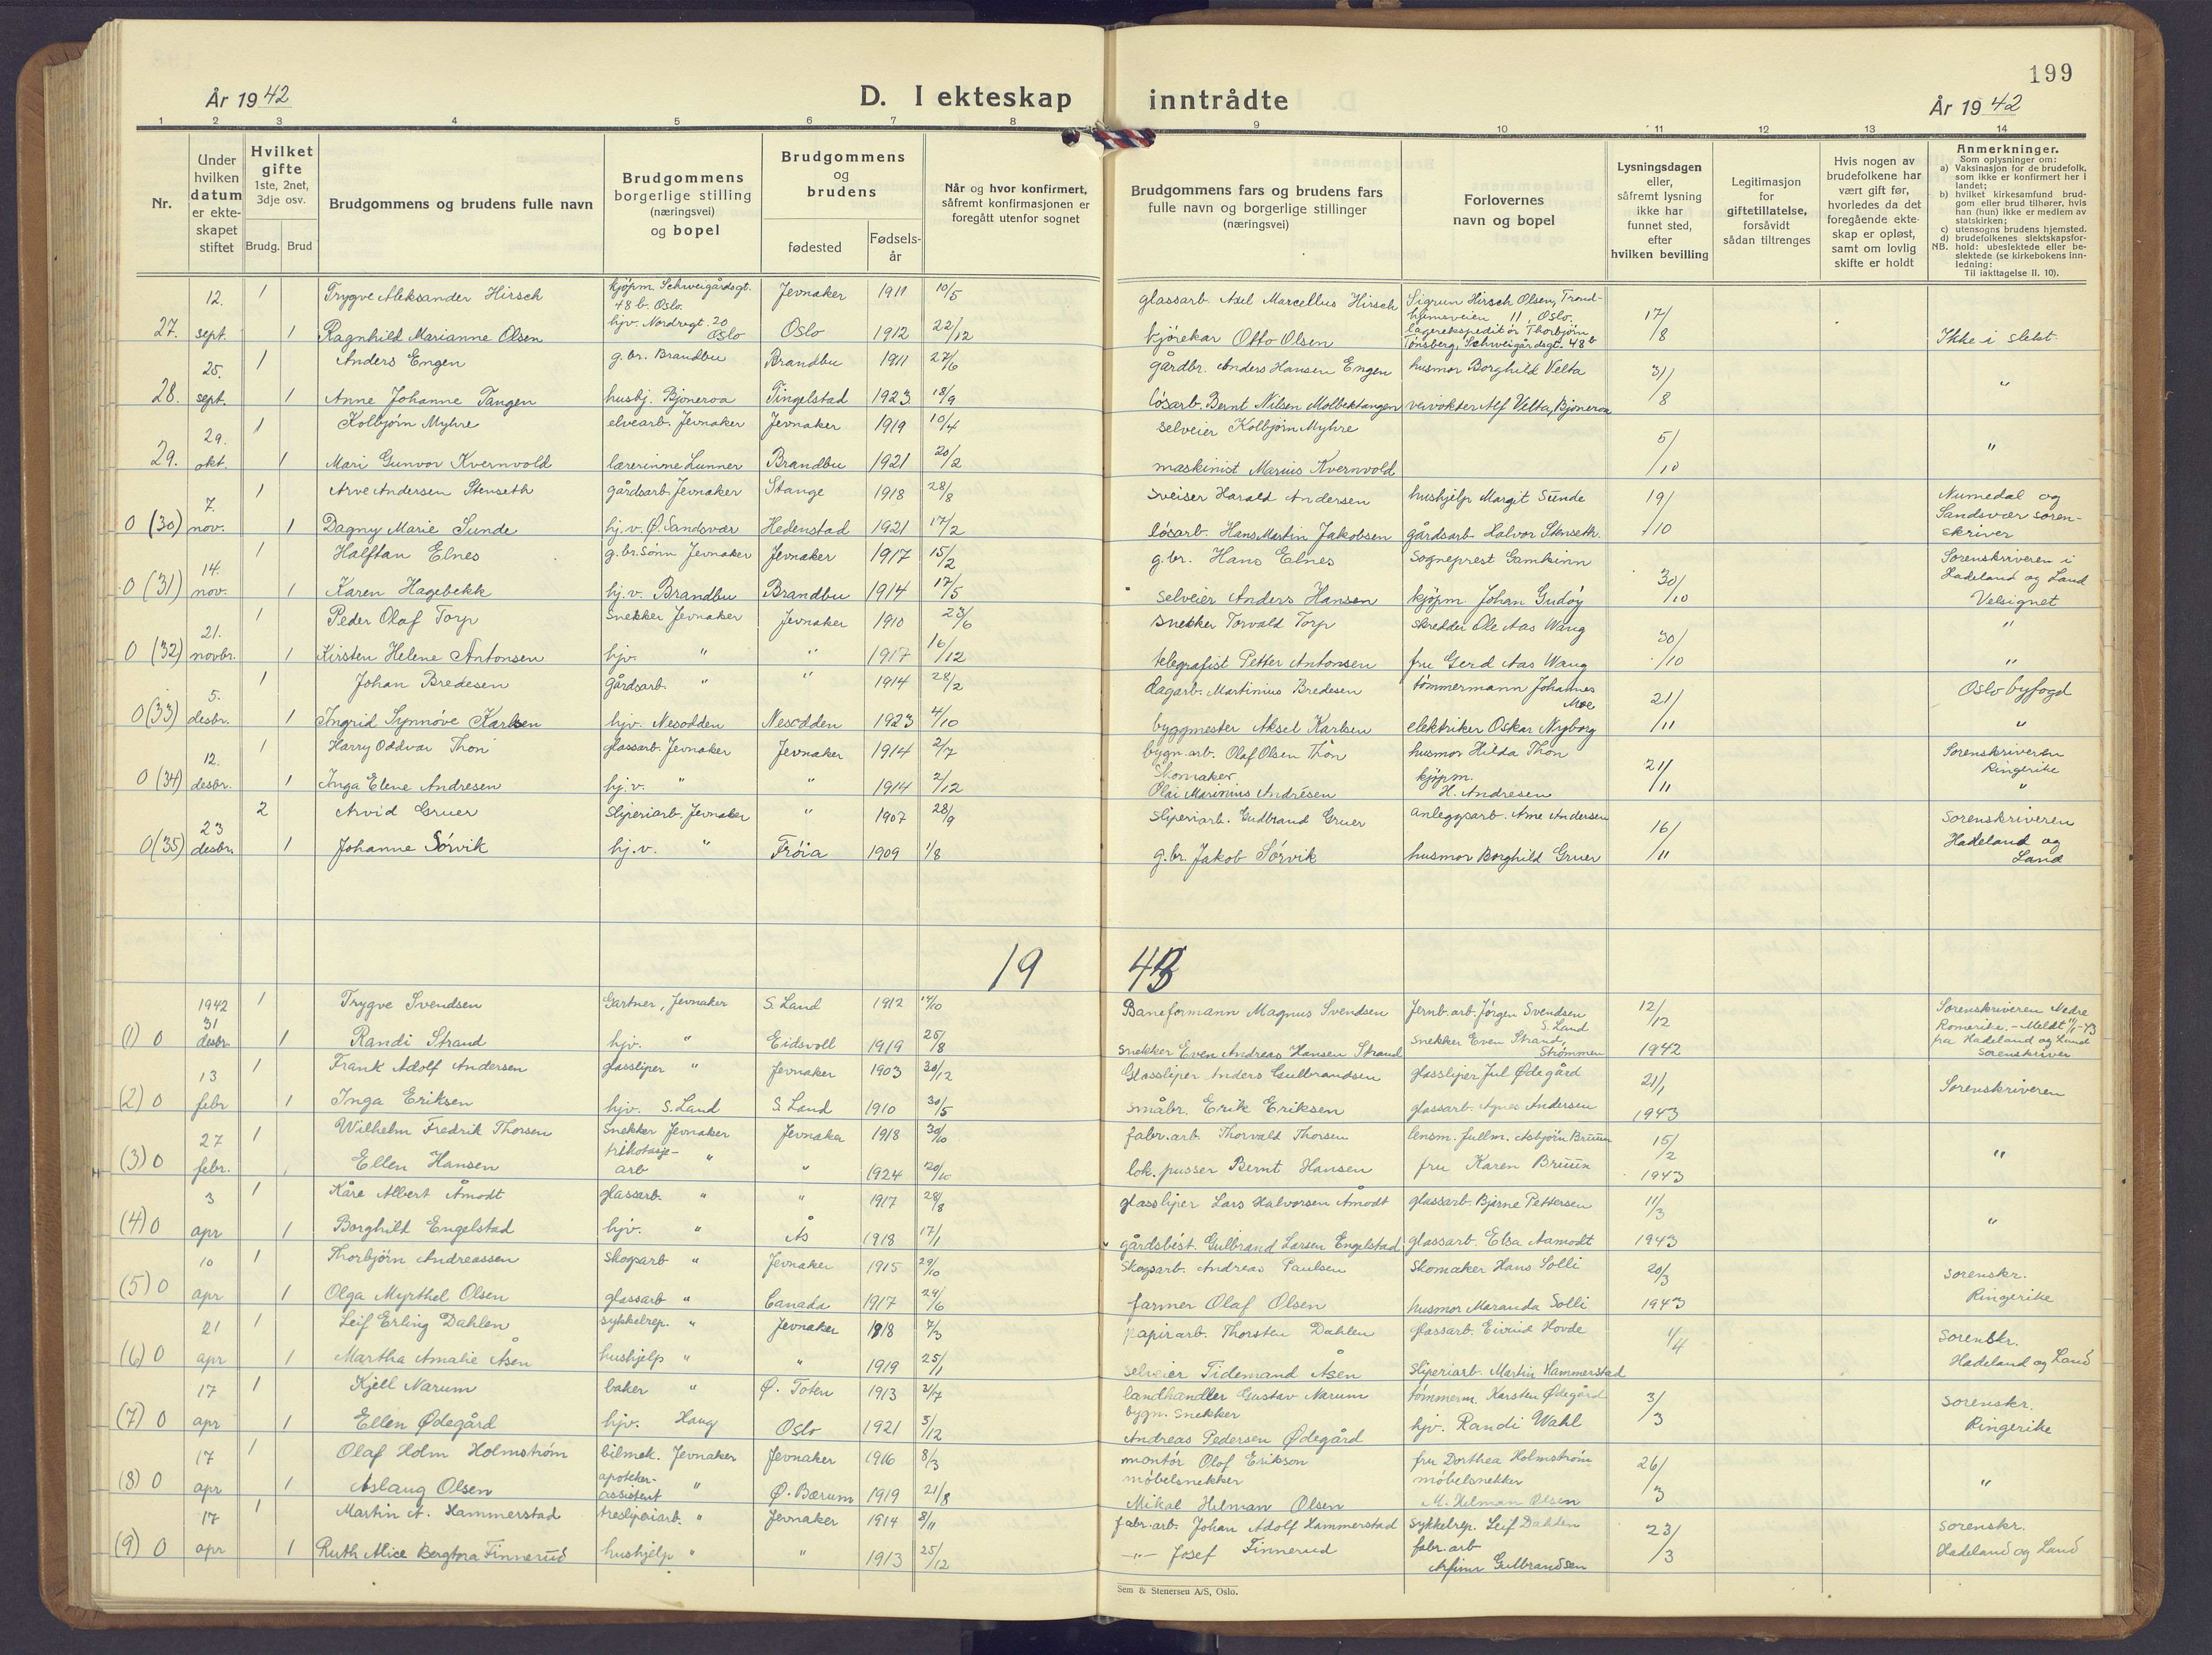 199
År 1942
D. I ekteskap inntrådte
År 1942
1 2 3 4 5 6 7 8 9 10 11 12 13 14
Nr.
Under hvilken datum er ekteskapet stiftet
Hvilket gifte 1ste, 2net, 3dje osv.
Brudg. Brud
Brudgommens og brudens fulle navn
Brudgommens borgerlige stilling (næringsvei) og bopel
Brudgommens og brudens
fødested
Fødselsår
Når og hvor konfirmert, såfremt konfirmasjonen er foregått utenfor sognet
Brudgommens fars og brudens fars fulle navn og borgerlige stillinger (næringsvei)
Forlovernes navn og bopel
Lysningsdagen eller, såfremt lysning ikke har funnet sted, efter hvilken bevilling
Legitimasjon for giftetillatelse, forsåvidt sådan tiltrenges
Hvis nogen av brudefolkene har vært gift før, hvorledes da det foregående ekteskap er opløst, samt om lovlig skifte er holdt
Anmerkninger.
Som oplysninger om:
a) Vaksinasjon for de brudefolk, som ikke er konfirmert her i landet;
b) hvilket kirkesamfund brudgom eller brud tilhører, hvis han (hun) ikke er medlem av statskirken;
c) utensogns brudens hjemsted.
d) brudefolkenes slektskapsforhold: ubeslektede eller beslektede (se kirkebokens innledning:
NB. Til iakttagelse II. 10).
12. 1 Trygve Aleksander Hirsch kjøpm. Schweigårdsgt. 48 b. Oslo. Jevnaker 1911 10/5 glassarb. Axel Marcellus Hirsch Sigrun Hirsch Olsen, Trondhjemsveien 11, Oslo. 17/8
27. sept. 1 Ragnhild Marianne Olsen hjv. Nordregt. 20 Oslo Oslo 1912 22/12 kjørekar Otto Olsen lagerekspeditör Thorbjørn Tønsberg, Schweigårdsgt. 48b Ikke i slekt.
25. 1 Anders Engen g.br. Brandbu Brandbu 1911 27/6 gårdbr. Anders Hansen Engen husmor Borghild Velta 31/8
28. sept. 1 Anne Johanne Tangen hushj. Bjoneroa Tingelstad 1923 18/9 løsarb. Bernt Nilsen Molbektangen veivokter Alf Velta, Bjoneroa "
29. 1 Kolbjørn Myhre elvearb. Jevnaker Jevnaker 1919 10/4 selveier Kolbjørn Myhre 5/10
29. okt. 1 Mari Gunvor Kvernvold lærerinne Lunner Brandbu 1921 20/2 maskinist Marius Kvernvold "
7. 1 Arve Andersen Stenseth gårdsarb. Jevnaker Stange 1918 28/8 Sveiser Harald Andersen hushjelp Margit Sunde 19/10 Numedal og Sandsvær sorenskriver
0 (30) nov. 1 Dagny Marie Sunde hj.v. Ø. Sandsvær Hedenstad 1921 17/2 løsarb. Hans Martin Jakobsen gårdsarb. Halvor Stenseth.
14. 1 Halftan Elnes g.br.sønn Jevnaker Jevnaker 1917 15/2 g.br. Hans Elnes Sogneprest Gamkinn 30/10 Sorenskriveren i Hadeland og Land
0 (31) nov. 1 Karen Hagebekk hj.v. Brandbu Brandbu 1914 17/5 selveier Anders Hansen kjøpm. Johan Gudøy Velsignet
21. 1 Peder Olaf Torp Snekker Jevnaker Jevnaker 1910 23/6 Snekker Torvald Torp skredder Ole Aas Wang 30/10 "
0 (32) novbr. 1 Kirsten Helene Antonsen hjv. " " 1917 16/12 telegrafist Petter Antonsen fru Gerd Aas Wang "
5. 1 Johan Bredesen gårdsarb. " " 1914 28/2 dagarb. Martinius Bredesen tømmermann Johannes Moe 21/11 Oslo byfogd
0 (33) desbr. 1 Ingrid Synnøve Karlsen hjv. Nesodden Nesodden 1923 4/10 byggmester Aksel Karlsen elektriker Oskar Nyborg "
12. 1 Harry Oddvar Thon glassarb. Jevnaker Jevnaker 1914 2/7 bygn.arb. Olaf Olsen Thon husmor Hilda Thon 21/11 Sorenskriveren Ringerike
0 (34) desbr. 1 Inga Elene Andresen hj.v. " " 1914 2/12 Skomaker Olai Marinius Andrésen kjøpm. H. Andresen "
23 2 Arvid Gruer Sliperiarb. Jevnaker " 1907 28/9 Sliperiarb. Gudbrand Gruer anleggsarb. Arne Andersen 16/11 Sorenskriveren
0 (35) desbr. 1 Johanne Sørvik hj.v. " Frøia 1909 1/8 g.br. Jakob Sørvik husmor Borghild Gruer Hadeland og Land
19 43
1942 1 Trygve Svendsen Gartner, Jevnaker S. Land 1912 14/10 Baneformann Magnus Svendsen Jernb.arb. Jørgen Svendsen S. Land 12/12 Sorenskriveren Nedre Romerike. - Meldt 11/1-43
(1) 0 31 desbr. 1 Randi Strand hjv. " Eidsvoll 1919 25/8 snekker Even Andreas Hansen Strand snekker Even Strand, Strømmen 1942 fra Hadeland og Land Sorenskriver
13 1 Frank Adolf Andersen glassliper " Jevnaker 1903 30/12 Glassliper Anders Gulbrandsen glassliper Jul Ødegård 21/1 Sorenskriveren
(2) 0 febr 1 Inga Eriksen hjv. S. Land S. Land 1910 30/5 småbr. Erik Eriksen glassarb. Agnes Andersen 1943
27 1 Wilhelm Fredrik Thorsen snekker Jevnaker Jevnaker 1918 30/10 fabr.arb. Thorvald Thorsen lensm. fullm. Asbjørn Bruun 15/2
(3) 0 febr. Ellen Hansen trikotasje-arb " " 1924 20/10 lok.pusser Bernt Hansen fru Karen Bruun 1943 "
3 1 Kåre Albert Åmodt glassarb. " " 1917 28/8 glassliper Lars Halvorsen Åmodt glassarb. Bjarne Pettersen 11/3
(4) 0 apr 1 Borghild Engelstad hjv. " Ås 1918 17/1 gårdsbest. Gulbrand Larsen Engelstad glassarb. Elsa Aamodt 1943 "
10 1 Thorbjörn Andreassen Skogsarb " Jevnaker 1915 29/10 Skogsarb. Andreas Paulsen Skomaker Hans Solli 20/3 sorenskr.
(5) 0 apr 1 Olga Myrthel Olsen glassarb " Canada 1917 24/6 farmer Olaf Olsen husmor Maranda Solli 1943 Ringerike
21 1 Leif Erling Dahlen sykkelrep. " Jevnaker 1918 7/3 papirarb. Thorsten Dahlen glassarb. Eivind Hovde 1/4 Sorenskr.
(6) 0 apr 1 Martha Amalie Åsen hushjelp " " 1919 25/1 selveier Tidemand Åsen Sliperiarb. Martin Hammerstad Hadeland og Land
17 1 Kjell Narum baker " Ø. Toten 1913 2/7 landhandler Gustav Narum tømmerm. Karsten Ødegård 3/3 Sorenskr.
(7) 0 apr 1 Ellen Ødegård hjv. Haug Oslo 1921 5/12 bygn. Snekker Andreas Pedersen Ødegård hjv. Randi Wahl Ringerike
17 1 Olaf Holm Holmstrøm bilmek. Jevnaker Jevnaker 1916 8/3 montør Olof Erikson fru Dorthea Holmstrøm 26/3
(8) 0 apr 1 Aslaug Olsen apoteker-assistent " Ø. Bærum 1919 21/8 möbelsnekker Mikal Hilman Olsen möbelsnekker M. Hilman Olsen "
17 1 Martin A. Hammerstad tresliperiarb. " Jevnaker 1914 8/11 fabr.arb. Johan Adolf Hammerstad sykkelrep. Leif Dahlen 23/3 sorenskr.
(9) 0 apr 1 Ruth Alice Bergtora Finnerud hushjelp " " 1913 25/12 -"- Josef Finnerud fabr.arb Arfinn Gulbrandsen Hadeland og Land
Sem & Stenersen A/S, Oslo.